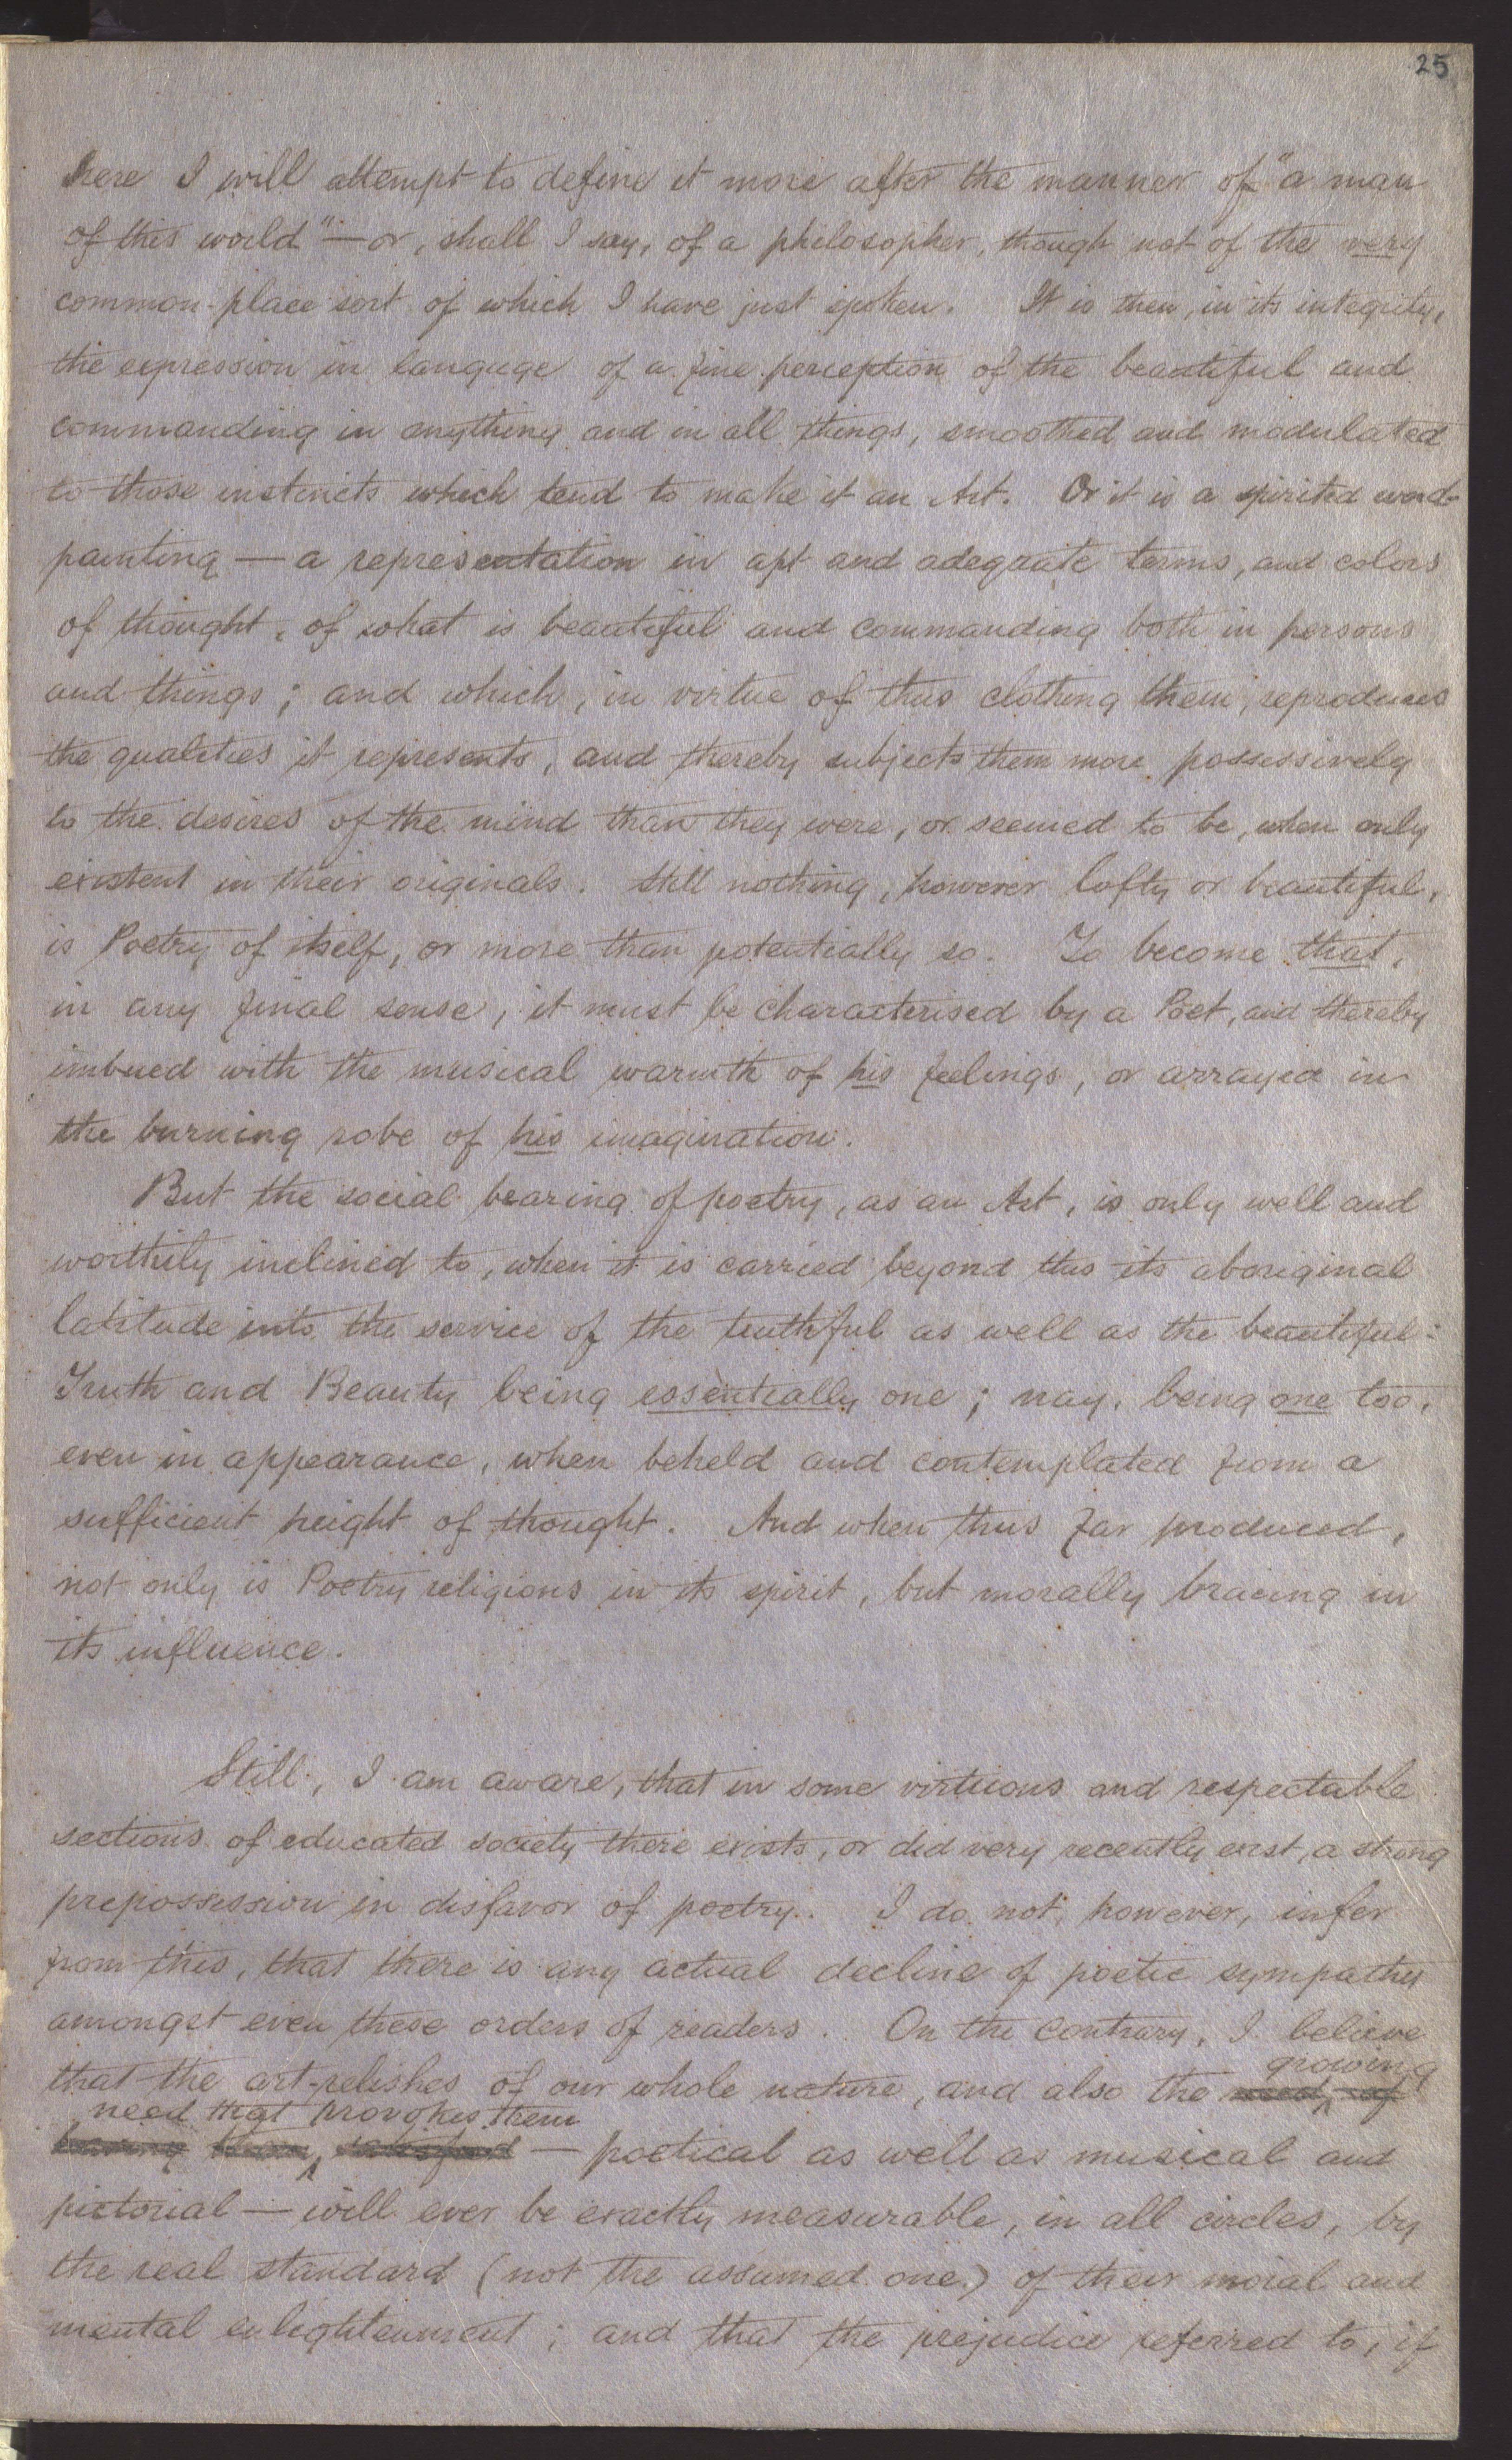 25
here I will attempt to define it more after the manner of "a man
of this world" — or, shall I say, of a philosopher, though not of the very
common-place sort of which I have just spoken. It is then, in its integrity,
the expression in languge of a fine perception of the beautiful and
commanding in anything and in all things, smoothed and modulated
to those instincts which tend to make it an Art. Or it is a spirited word-
painting — a representation in apt and adequate terms, and colors
of thought, of what is beautiful and commanding both in persons
and things; and which, in virtue of thus clothing them, reproduces
the qualities it represents, and thereby subjects them more possessively
to the desires of the mind than they were, or seemed to be, when only
existent in their originals. Still nothing, however lofty or beautiful,
is Poetry of itself, or more than potentially so. To become that,
in any final sense, it must be characterised by a Poet, and thereby
imbued with the musical warmth of his feelings, or arrayed in
the burning robe of his imagination.
But the social bearing of poetry, as an Art, is only well and
worthily inclined to, when it is carried beyond this its aboriginal
latitude into the service of the truthful as well as the beautiful:
Truth and Beauty being essentially one; nay, being one too,
even in appearance, when beheld and contemplated from a
sufficient height of thought. And when thus far produced,
not only is Poetry religious in its spirit, but morally bracing in
its influence.
Still, I am aware, that in some virtuous and respectable
sections of educated society there exists, or did very recently exist, a strong
prepossession in disfavor of poetry. I do not, however, infer
from this, that there is any actual decline of poetic sympathy
amongst even these orders of readers. On the contrary, I believe
growing
that the art-relishes of our whole nature, and also the need of
need that provokes them
having them satisfied — poetical as well as musical and
pictorial — will ever be exactly measurable, in all circles, by
the real standard (not the assumed one) of their moral and
mental enlightenment; and that the prejudice referred to, if